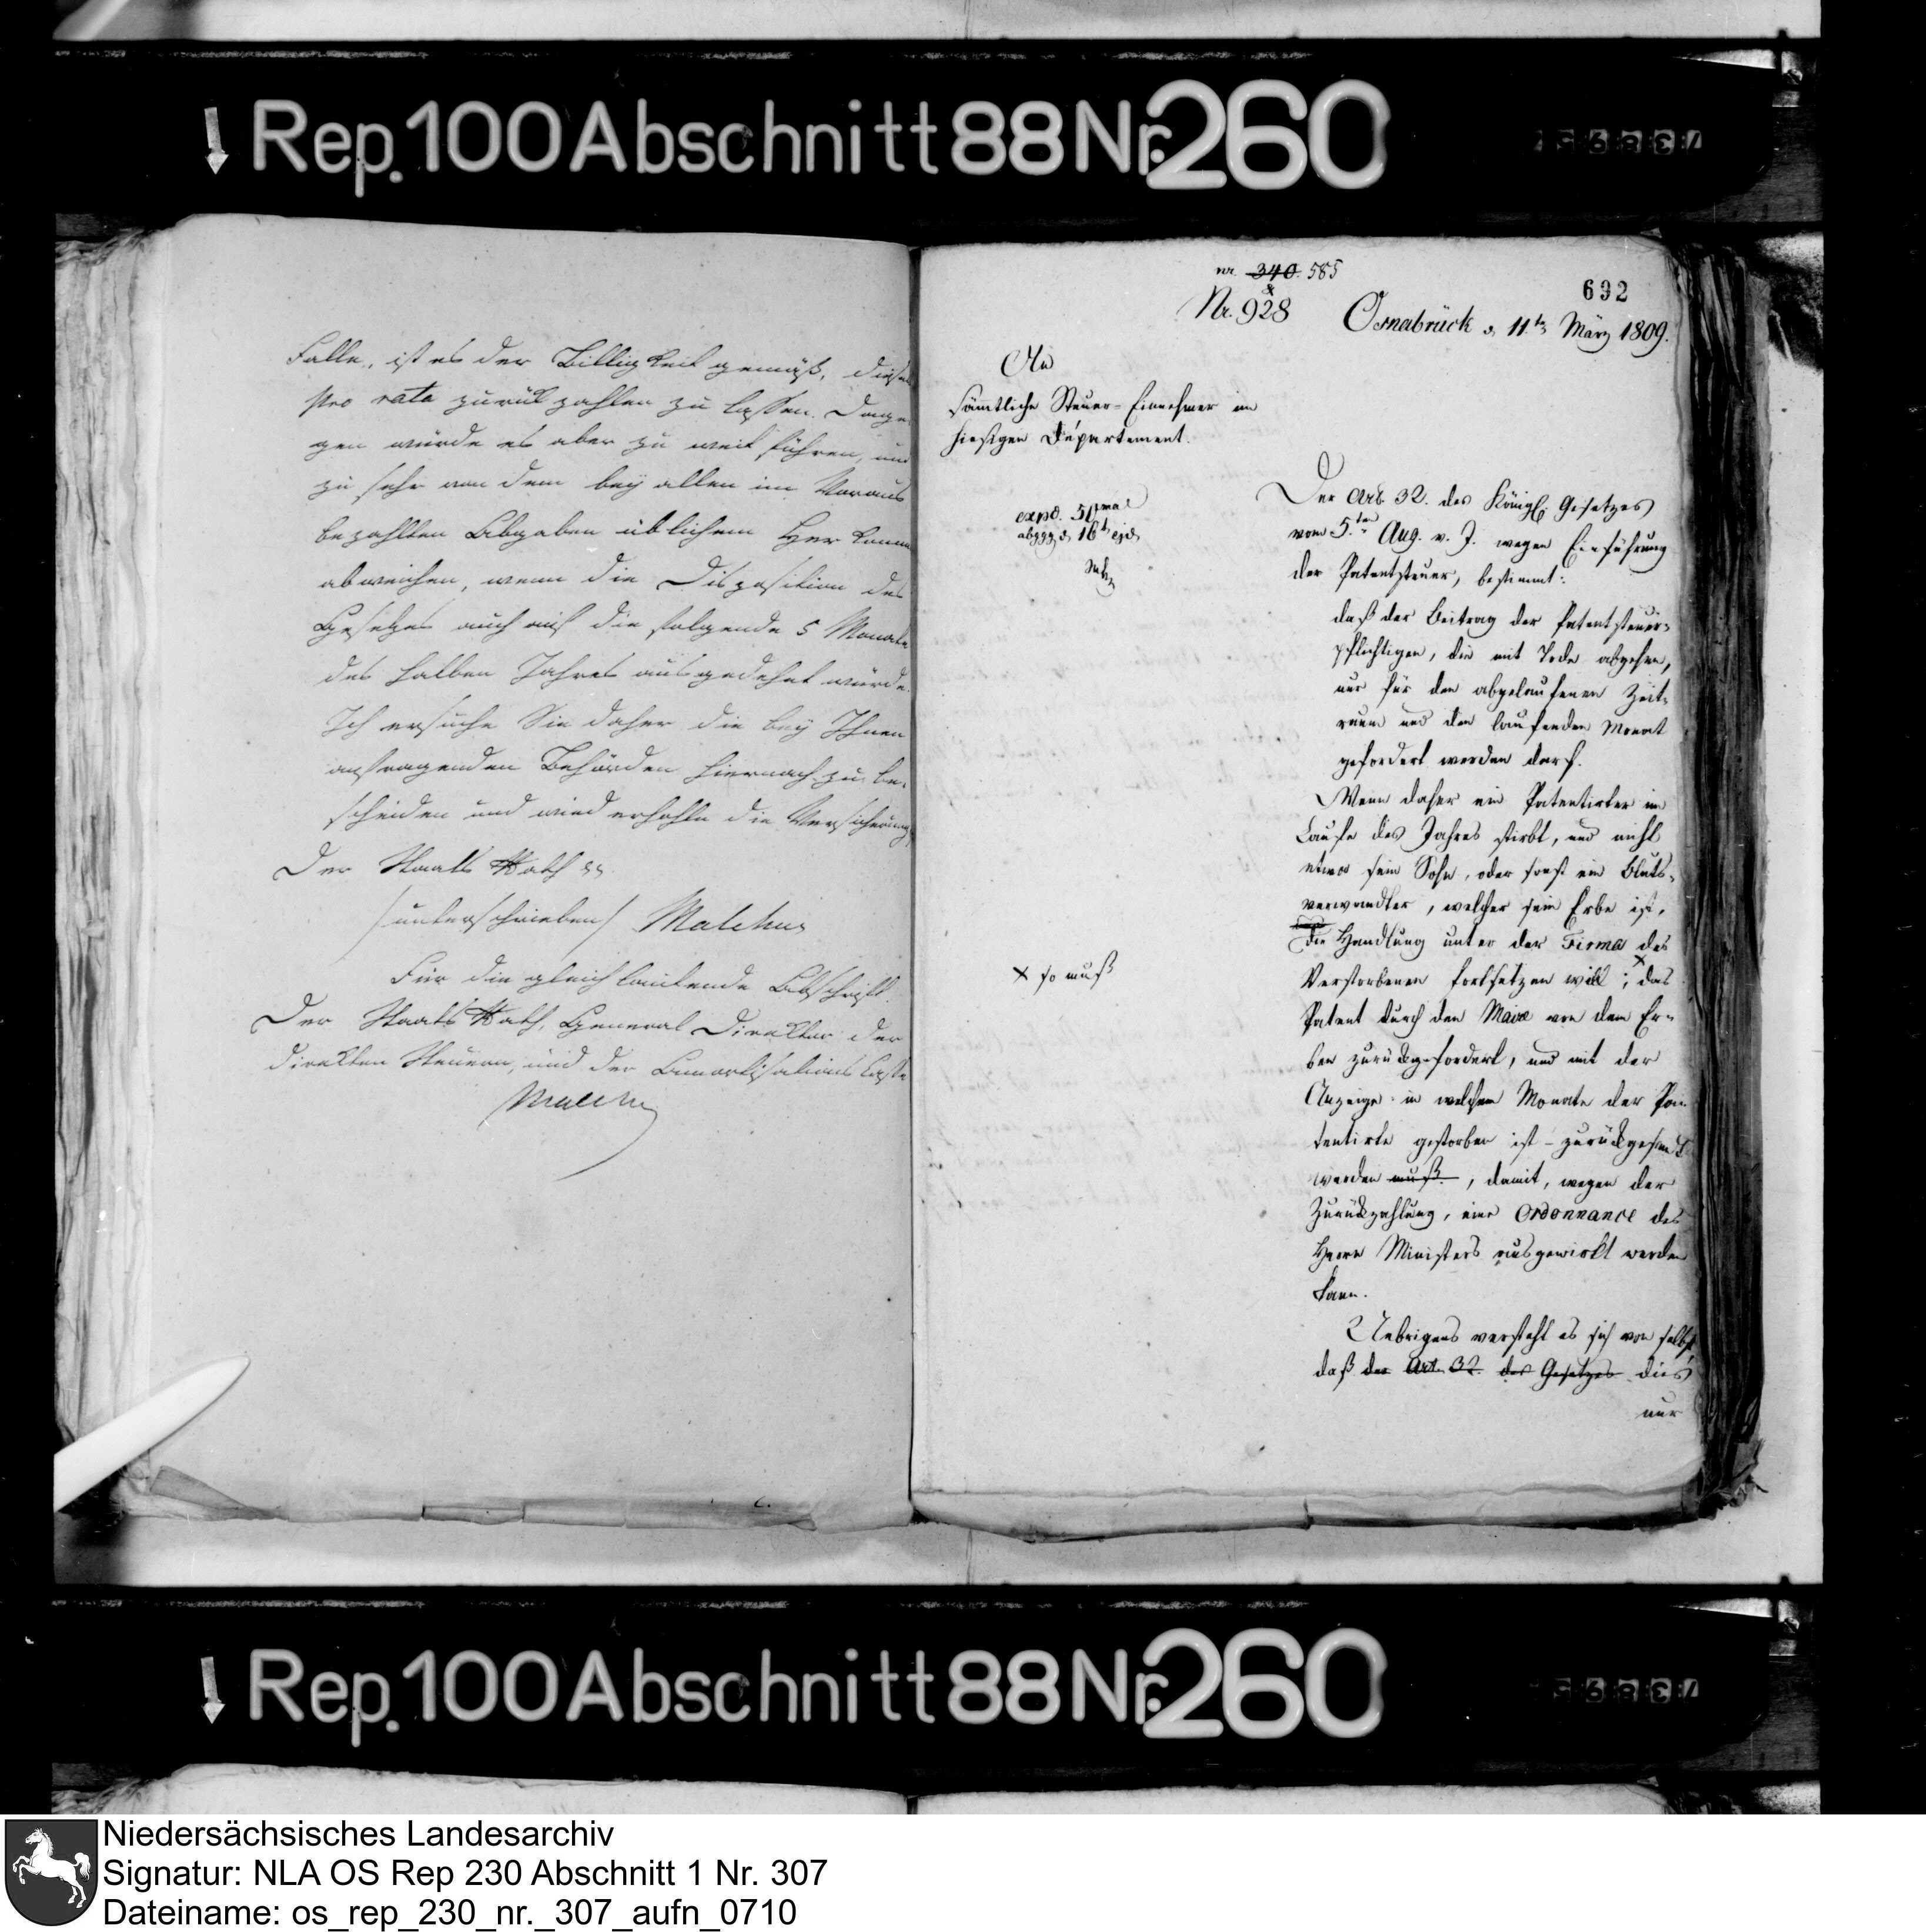 Rep. 100 Abschnitt 88 Nr. 260
73895
Falle, ist es der Billigkeit gemäß, diese
pro rata zurück zahlen zu lassen. Dage
gen würde es aber zu weit führen, und
zu sehr von dem bey allen im Voraus
bezahlten Abgaben üblichem Her komm
abweichen, wenn die Disposition des
Gesetzes auch auf die folgende 5 Monate
des halben Jahres ausgedehnt würde.
Ich ersuche Sie daher die bey Ihnen
anfragenden Behörden hiernach zu be-
scheiden und wiederhohle die Versicherung
Der Staats Rath
/unterschrieben/ Malchus
Für die gleichlautende Abschrift.
Der Staats Rath, General Direktor der
direkten Steuern, und der Amortisations Casse
Malchus
nr. 340. 585
Nr. 928
692
Osnabrück d. 11.ten März 1809.
An
sämtliche Steuer-Einnehmer im
hiesigen Département.
expd. 51mal
abggg d. 16t ejd.
Der Art. 32. des Königl. Gesetzes
vom 5.ten Aug. v. J. wegen Einführung
der Patentsteuer, bestimmt:
daß der Beitrag der Patentsteuer-
pflichtigen, die mit Tode abgehen,
nur für den abgelaufenen Zeit-
raum und den laufenden Monat
gefordert werden darf.
Wenn daher ein Patentirter im
Laufe des Jahres stirbt, und nicht
etwa sein Sohn, oder sonst ein Bluts-
verwandter, welcher sein Erbe ist,
die Handlung unter der Firma des
Verstorbenen fortsetzen will; x das
x so muß
Patent durch den Maire von dem Er-
ben zurückgefordert, und mit der
Anzeige - in welchem Monate der Pa-
tentirte gestorben ist - zurückgesandt
werden muß, damit, wegen der
Zurückzahlung, eine Ordonnance des
Herrn Ministers ausgewirkt werden
kann.
Uebrigens versteht es sich von selbst,
daß der Art. 32. des Gesetzes dies
nur
Rep. 100 Abschnitt 88 Nr. 260
73895
Niedersächsisches Landesarchiv
Signatur: NLA OS Rep 230 Abschnitt 1 Nr. 307
Dateiname: os_rep_230_nr._307_aufn_0710